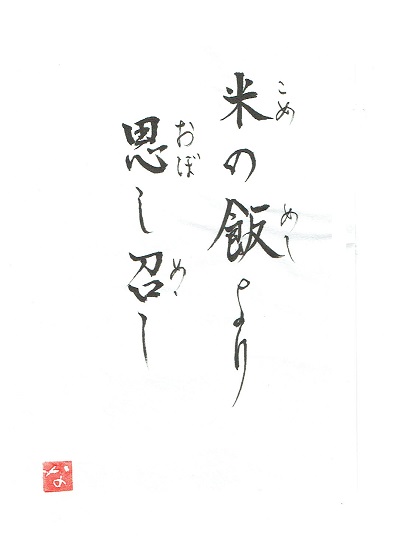 米の飯より
こめ めし
思し召し
おぼ め
な